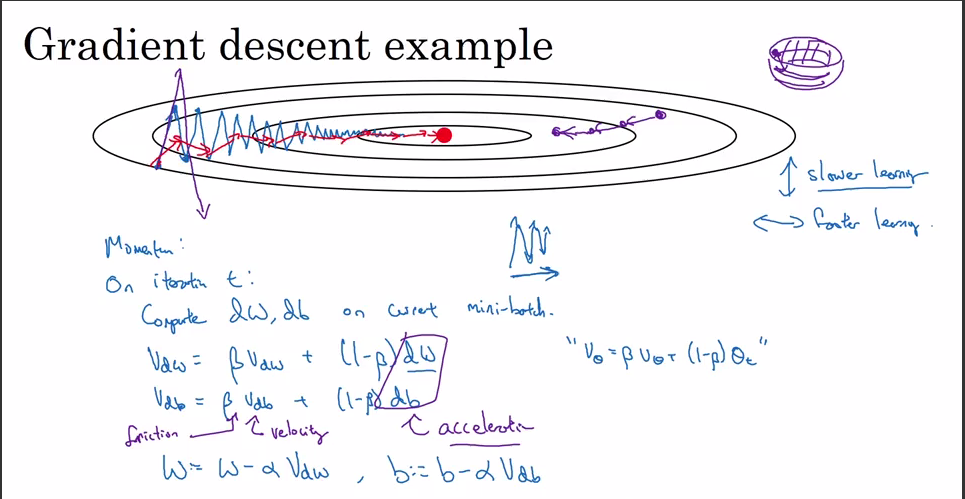 Gradient descent example
slower learning
faster learning.
Momentum:
On iteration t:
Compute dW, db on current mini-batch.
Vdw = β Vdw + (1-β) dW
"Vθ = β Vθ + (1-β) θt"
Vdb = β Vdb + (1-β) db
friction velocity acceleration
W := W - α Vdw , b := b - α Vdb